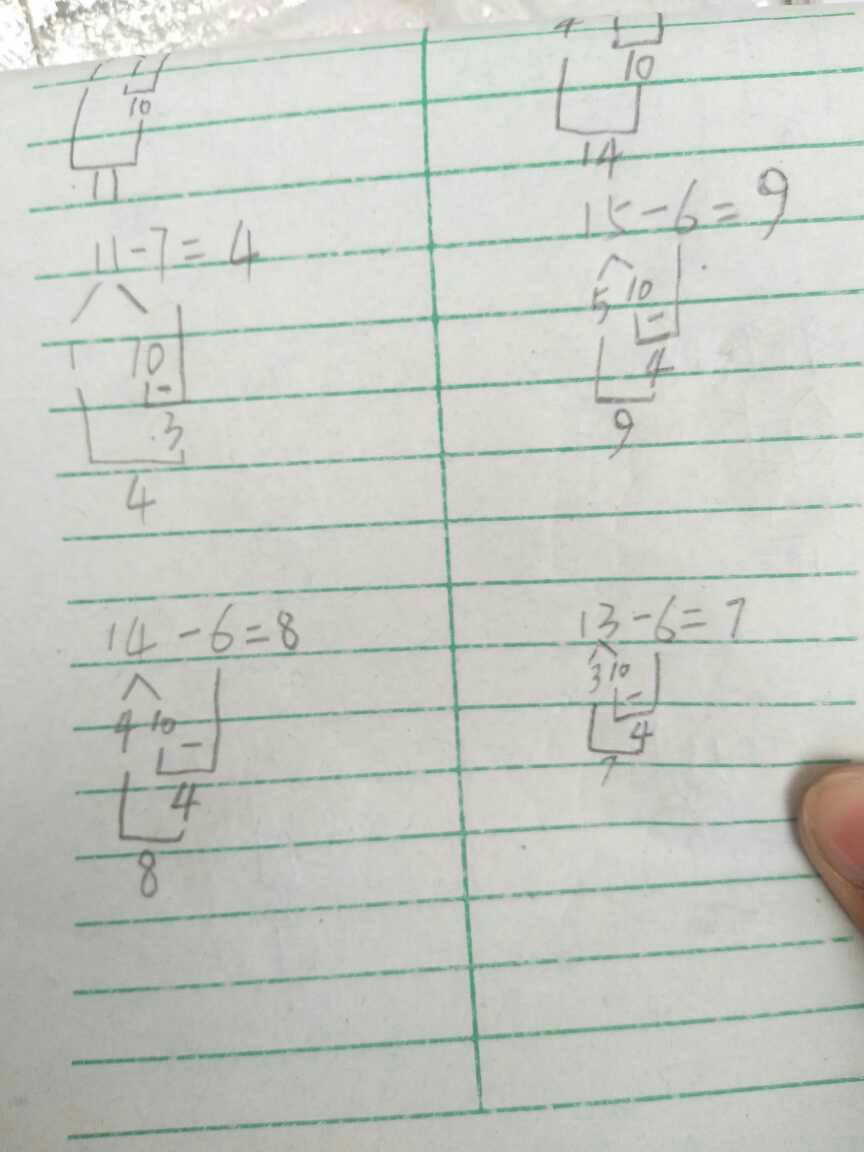 10
11
4
10
14
11-7=4
1 10
-
3
4
15-6=9
5 10
-
4
9
14-6=8
4 10
-
4
8
13-6=7
3 10
-
4
7